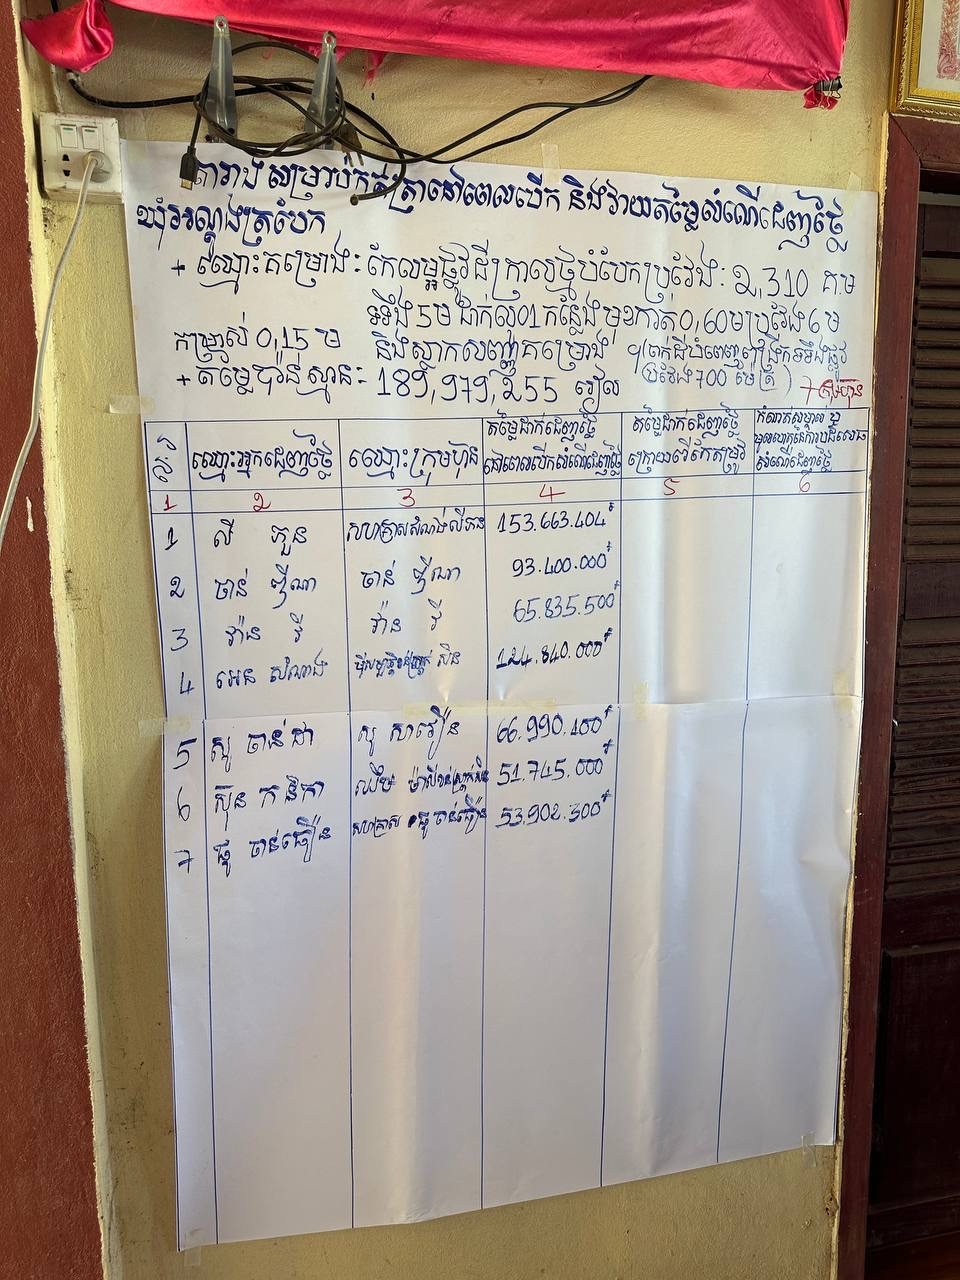 តារាងសម្រាប់កត់ត្រានៅពេលបើក និងវាយតម្លៃសំណើដេញថ្លៃ
ឃុំអណ្តូងត្របែក
+ ឈ្មោះគម្រោង: កែលម្អផ្លូវដីក្រាលថ្មបំបែកប្រវែង: ២,310 គម
ទទឹង 5ម ដាក់លូ 01 កន្លែង មុខកាត់ 0,60ម ប្រវែង 6 ម
កម្រាស់ 0,15 ម និងស្លាកសញ្ញាគម្រោង (ចាក់ដីបំពេញពង្រីកទទឹងផ្លូវ
ប្រវែង 700 ម៉ែត្រ)
+ តម្លៃប៉ាន់ស្មាន: 189,979,២55 រៀល
7 ក្រុមហ៊ុន
ល.រ ឈ្មោះអ្នកដេញថ្លៃ ឈ្មោះក្រុមហ៊ុន តម្លៃដាក់ដេញថ្លៃនៅពេលបើកសំណើដេញថ្លៃ តម្លៃដាក់ដេញថ្លៃក្រោយពីកែតម្រូវ កំណត់សម្គាល់ ឬមូលហេតុនៃការបដិសេធសំណើដេញថ្លៃ
1 ២ 3 4 5 6
1 លី ភួន សហគ្រាសសំណង់លីភួន 153.663.404៛
២ ចាន់ ឌីណា ចាន់ ឌីណា 93.400.000៛
3 វ៉ាន វី វ៉ាន វី 65.835.500៛
4 អេន សំណាង សិន 1២4.840.000៛
5 សូ ចាន់ដា សូ សាវឿន 66.990.400៛
6 ស៊ុន កនិកា ឈឹម 51.745.000៛
7 ផូ ចាន់ធឿន សហគ្រាស ផូ ចាន់ធឿន 53.90២.300៛